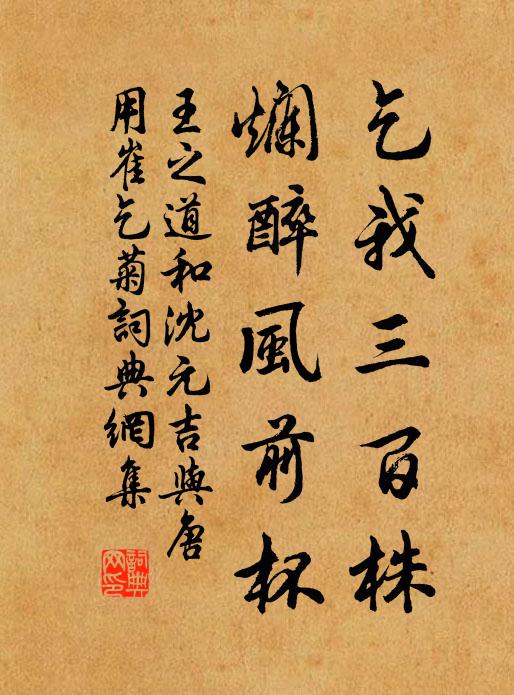 乞我三百株
爛醉風前杯
王之道和沈元吉與唐
用崔乞菊詞典網集
詞典
网印